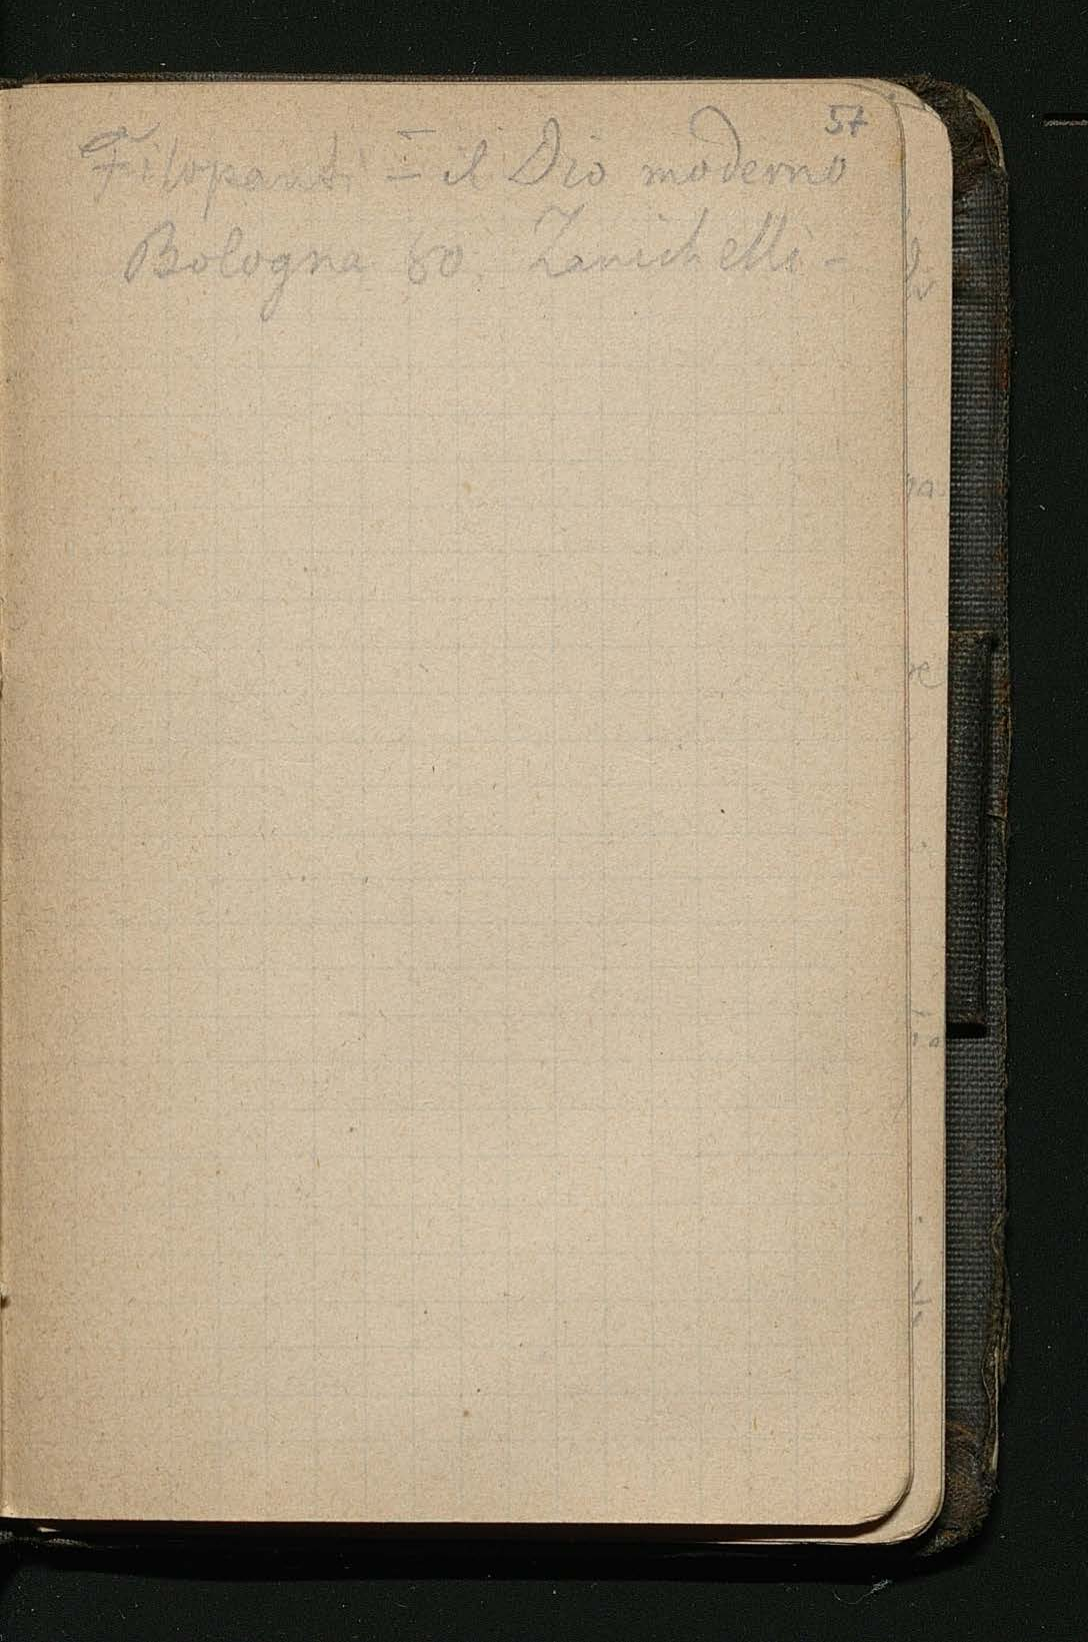 57
Filopanti = il Dio moderno
Bologna 80. Zanichelli -